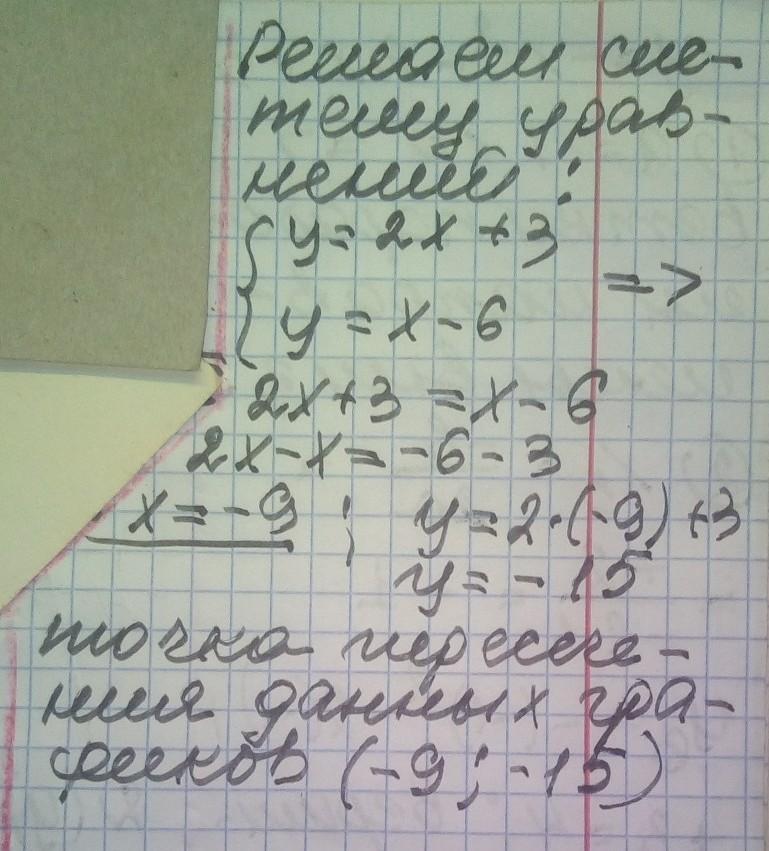 Решаем сис-
тему урав-
нений:
{y = 2x + 3
{y = x - 6 =>
2x + 3 = x - 6
2x - x = -6 - 3
x = -9 ; y = 2·(-9) + 3
y = -15
точка пересече-
ния данных гра-
фиков (-9; -15)